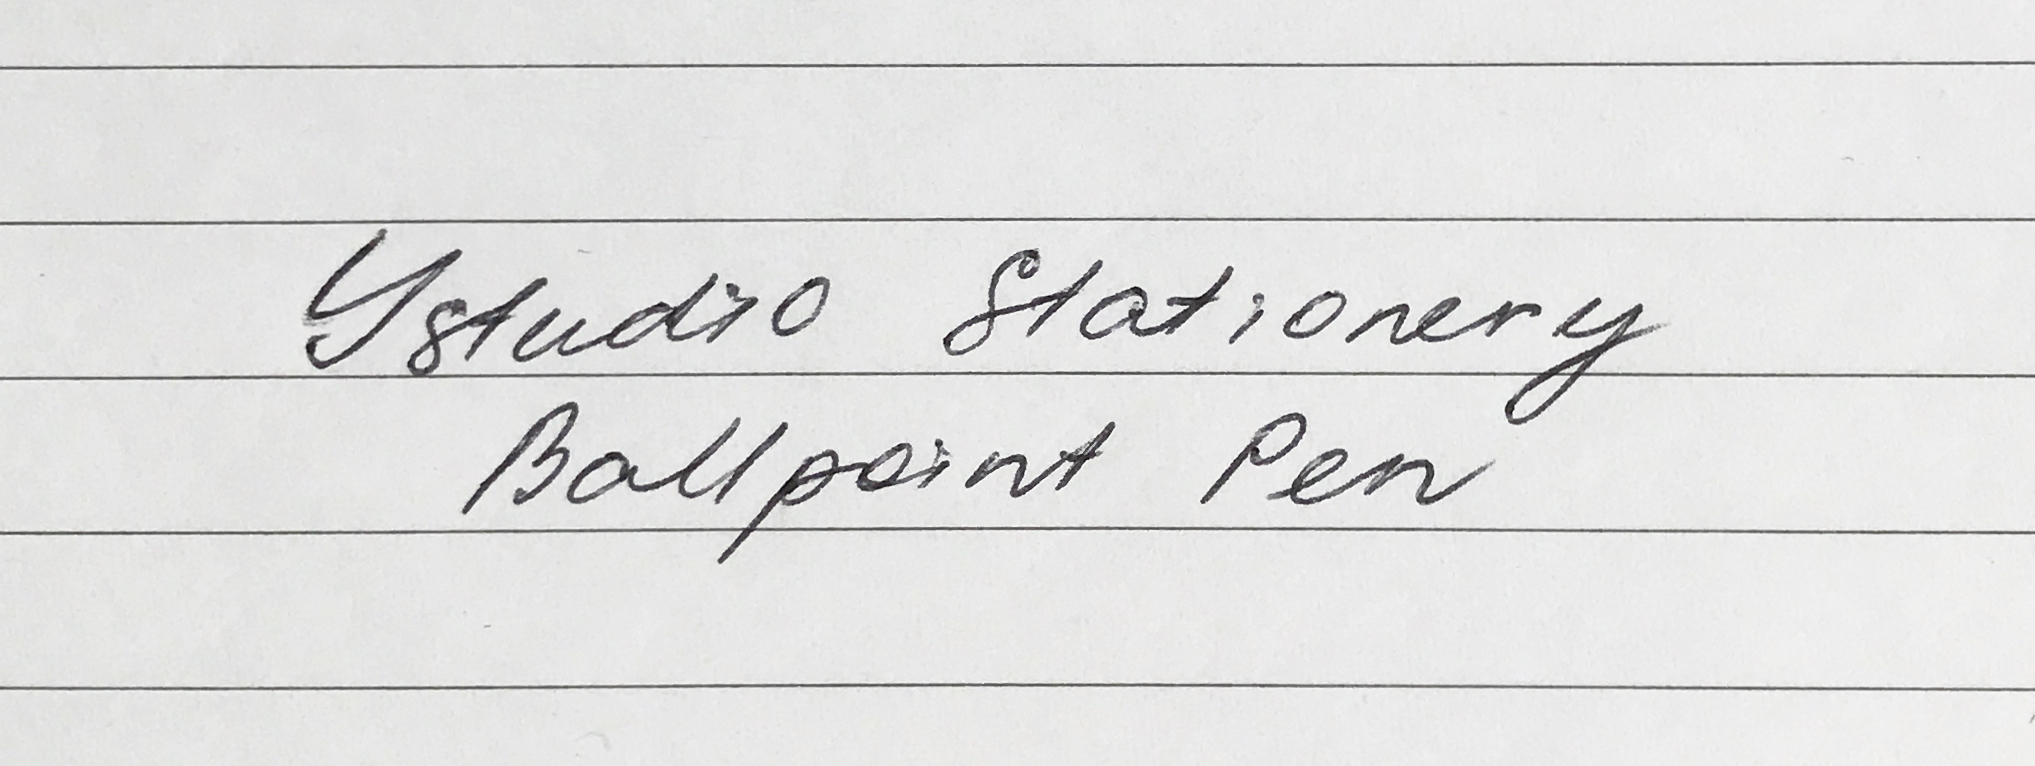 Ystudio Stationery
Ballpoint Pen